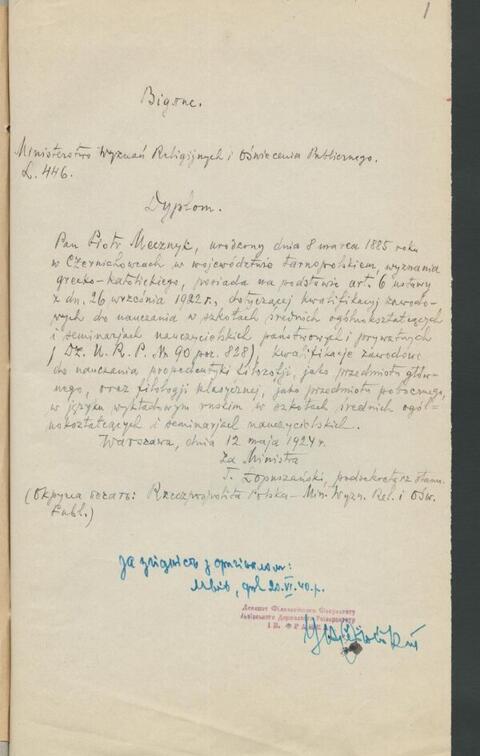 1
Відпис.
Ministerstwo Wyznań Religijnych i Oświecenia Publicznego.
L. 446.
Dyplom.
Pan Piotr Mecznyk, urodzony dnia 8 marca 1885 roku
w Czernichowcach w województwie tarnopolskiem, wyznania
grecko-katolickiego, posiada na podstawie art. 6 ustawy
z dn. 26 września 1922 r., dotyczącej kwalifikacyj zawodo-
wych do nauczania w szkołach średnich ogólnokształcących
i seminarjach nauczycielskich państwowych i prywatnych
(Dz. U. R. P. № 90 poz. 828), kwalifikacje zawodowe
do nauczania propedeutyki filozofji, jako przedmiotu głów-
nego, oraz filologji klasycznej, jako przedmiotu pobocznego,
w języku wykładowym ruskim w szkołach średnich ogól-
nokształcących i seminarjach nauczycielskich.
Warszawa, dnia 12 maja 1924 r.
Za Ministra
T. Łopuszański, podsekretarz stanu.
(Округла печать: Rzeczpospolita Polska - Min. Wyzn. Rel. i Ośw.
Publ.)
За згідність з оригіналом:
Львів, дня 20.VI.40.р.
Декан Філологічного Факультету
Львівського Державного Університету
ІМ. ФРАНКА